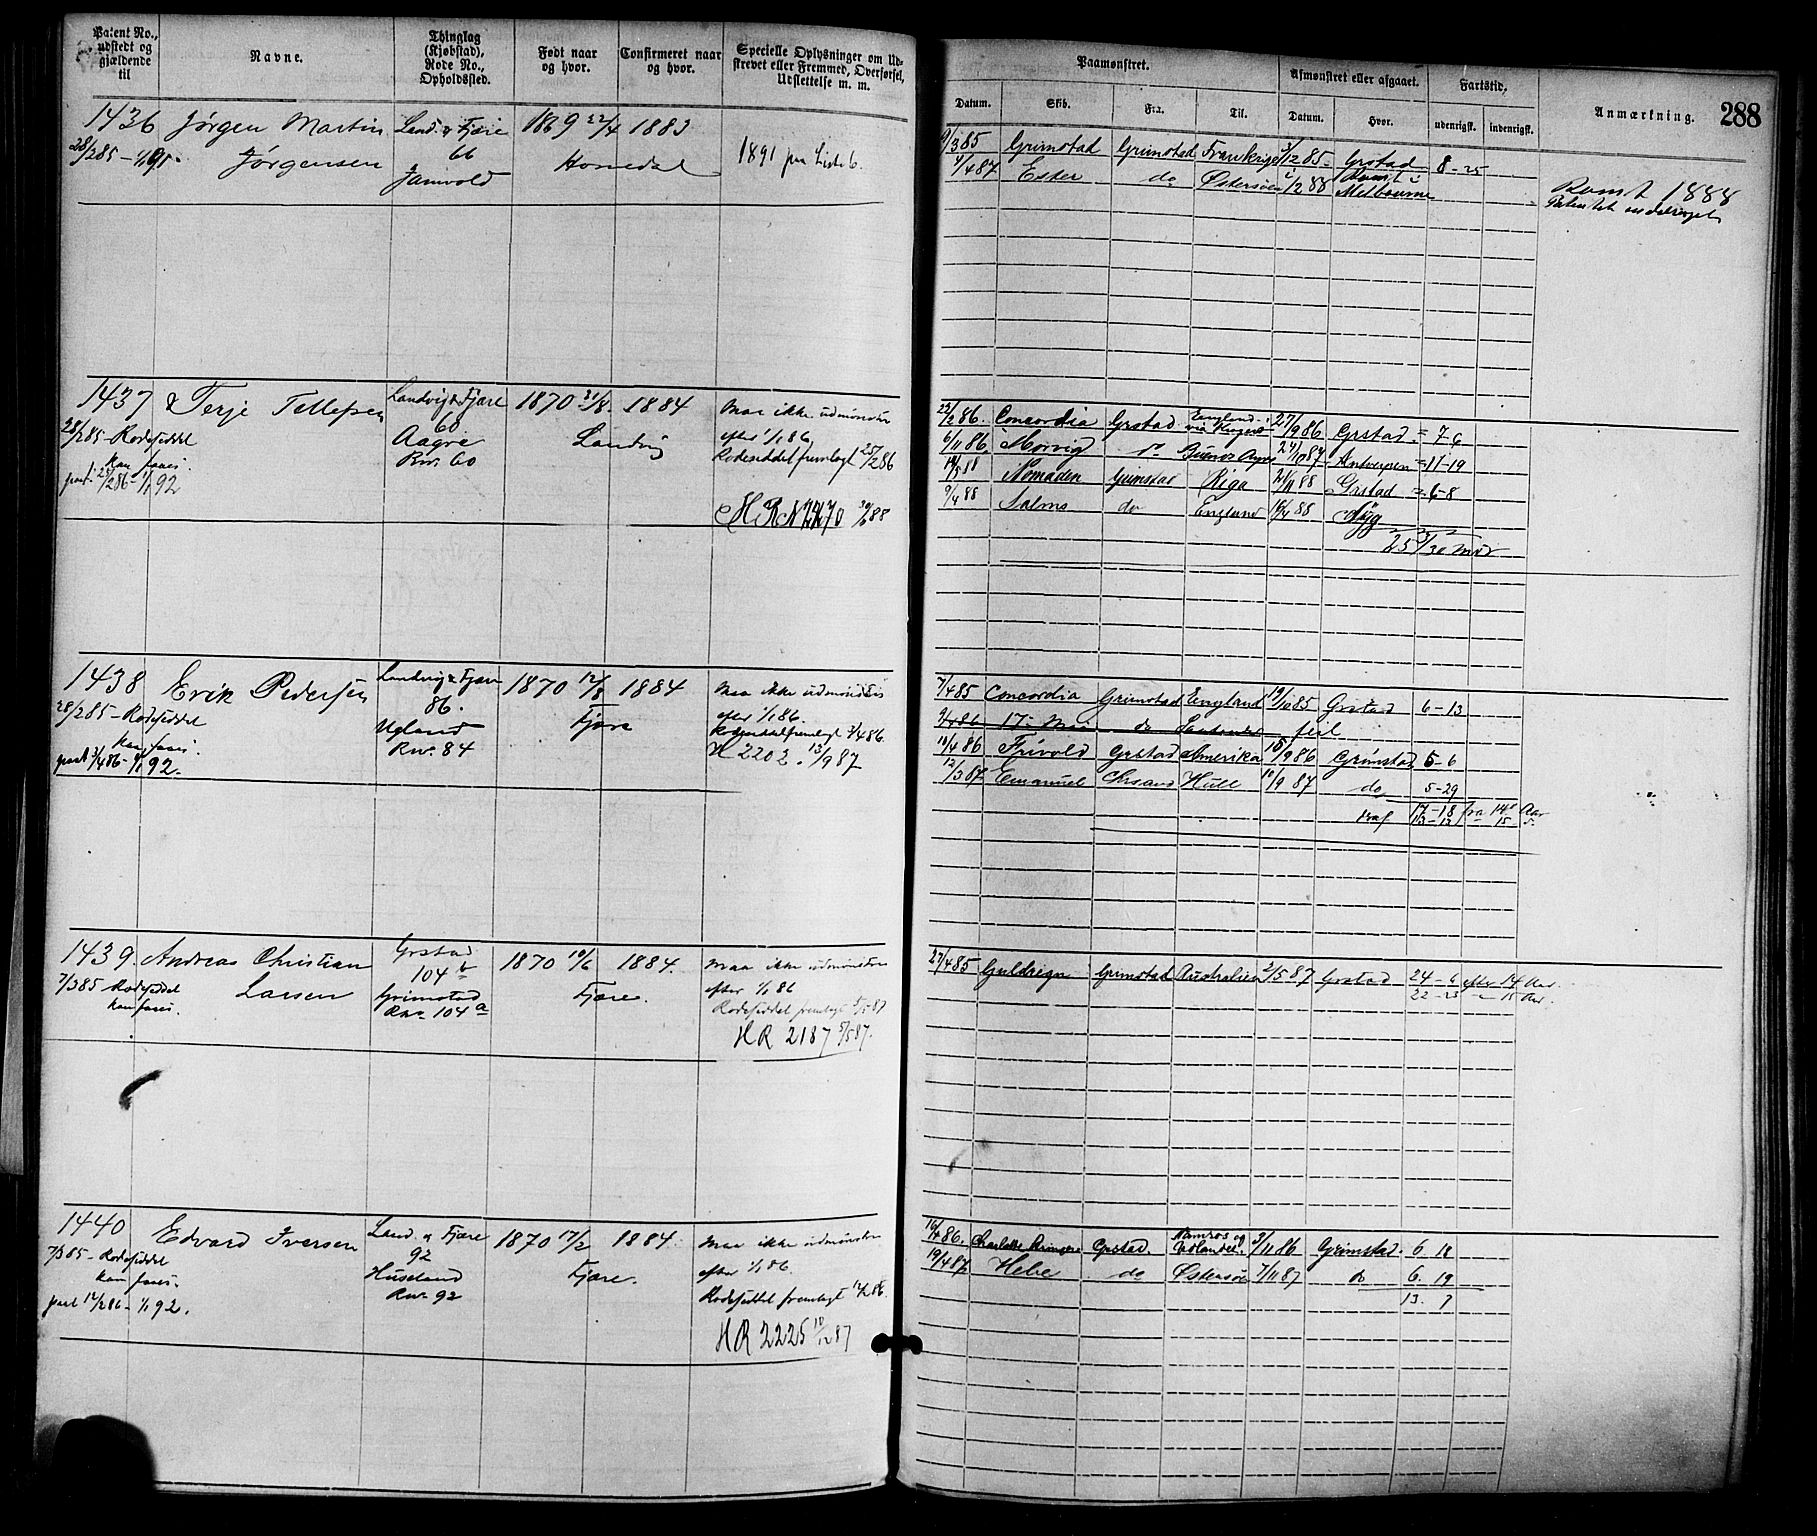 Patent No., udstedt og gjældende til
Navne.
Thinglag (Kjøbstad), Rode No., Opholdssted.
Født naar og hvor.
Confirmeret naar og hvor.
Specielle Oplysninger om Udskrevet eller Fremmed, Overførsel, Udslettelse m. m.
Paamønstret.
Afmønstret eller afgaaet.
Fartstid,
Anmærkning.
288
Datum.
Skib.
Fra.
Til.
Datum.
Hvor.
udenrigsk.
indenrigsk.
1436 Jørgen Martin Land. & Fjære 1869 22/4 1883
28/2 85 - Jørgensen 66 Homedal 1891 paa Liste 6.
9/3 85 Grimstad Grimstad Frankrige 5/12 85 Grstad 8-25
4/4 87 Ester do Østersøen 1/2 88 Rømt i Melbourne
Rømt 1888
1437 Terje Tellefsen Landvig & Fjære 1870 31/8 1884 Maa ikke udmønstres
28/2 85 - Rodeseddel 60 Landvig efter 1/1 86
kan faaes. Aagre Rodeseddel fremlagt 25/2 86
pat. 25/2 86 - 1/1 92 Rno. 60
HR N 2270 30/6 88
22/2 86. Concordia Grstad England 27/9 86 Grstad = 7-6
6/11 86. Morvig do Buenos Ayres 24/10 87 Antwerpen = 11-19
14/5 88 Nomaden Grimstad Riga 21/11 88 Grstad = 6-8
9/4 88 Salms do England 18/4 88
25 3/30 Mdr
1438 Erik Pedersen Landvig & Fjære 1870 12/8 1884 Maa ikke udmønstres
28/2 85 - Rodeseddel 86. Fjære efter 1/1 86.
kan faaes. Ugland Rodeseddel fremlagt 3/4 86
pat 3/4 86 - 1/1 92. Rno. 84 N 2202. 13/9 87
7/4 85 Concordia Grimstad England 19/10 85 Grstad 6-13
9/4 86 17 Mai do feil
10/4 86 Frivold Grstad Amerika 15/9 86 Grimstad 5-6
12/3 87 Emanuel Chrsand Hull 10/9 87 do 5-29
17-18 fra 14 Aar
13-12 15
1439. Andreas Christian Grstad 1870 10/6 1884. Maa ikke udmønstres
7/3 85 Rodeseddel Larsen 104 b Fjære. efter 1/1 86
kan faaes. Grimstad Rodeseddel fremlagt 5/5 87
Rno 104 a HR 2187 5/5 87.
27/4 85 Guldregn Grimstad Australien 2/5 87 Grstad 24-6 efter 14 Aar.
22-23 - 15 Aar.
1440 Edvard Iversen Land. & Fjære 1870 17/2 1884. Maa ikke udmønstres
7/3 85 - Rodeseddel 92 Fjære. efter 1/1 86.
kan faaes. Huseland Rodeseddel fremlagt 12/2 86.
pat 12/2 86 - 1/1 92. Rno. 92 HR 2225 10/12 87
16/4 86. Charlotte Grstad. 3/11 86 Grimstad. 6 18
19/4 87. Hebe do Østersøen 7/11 87 do 6. 19
13. 7